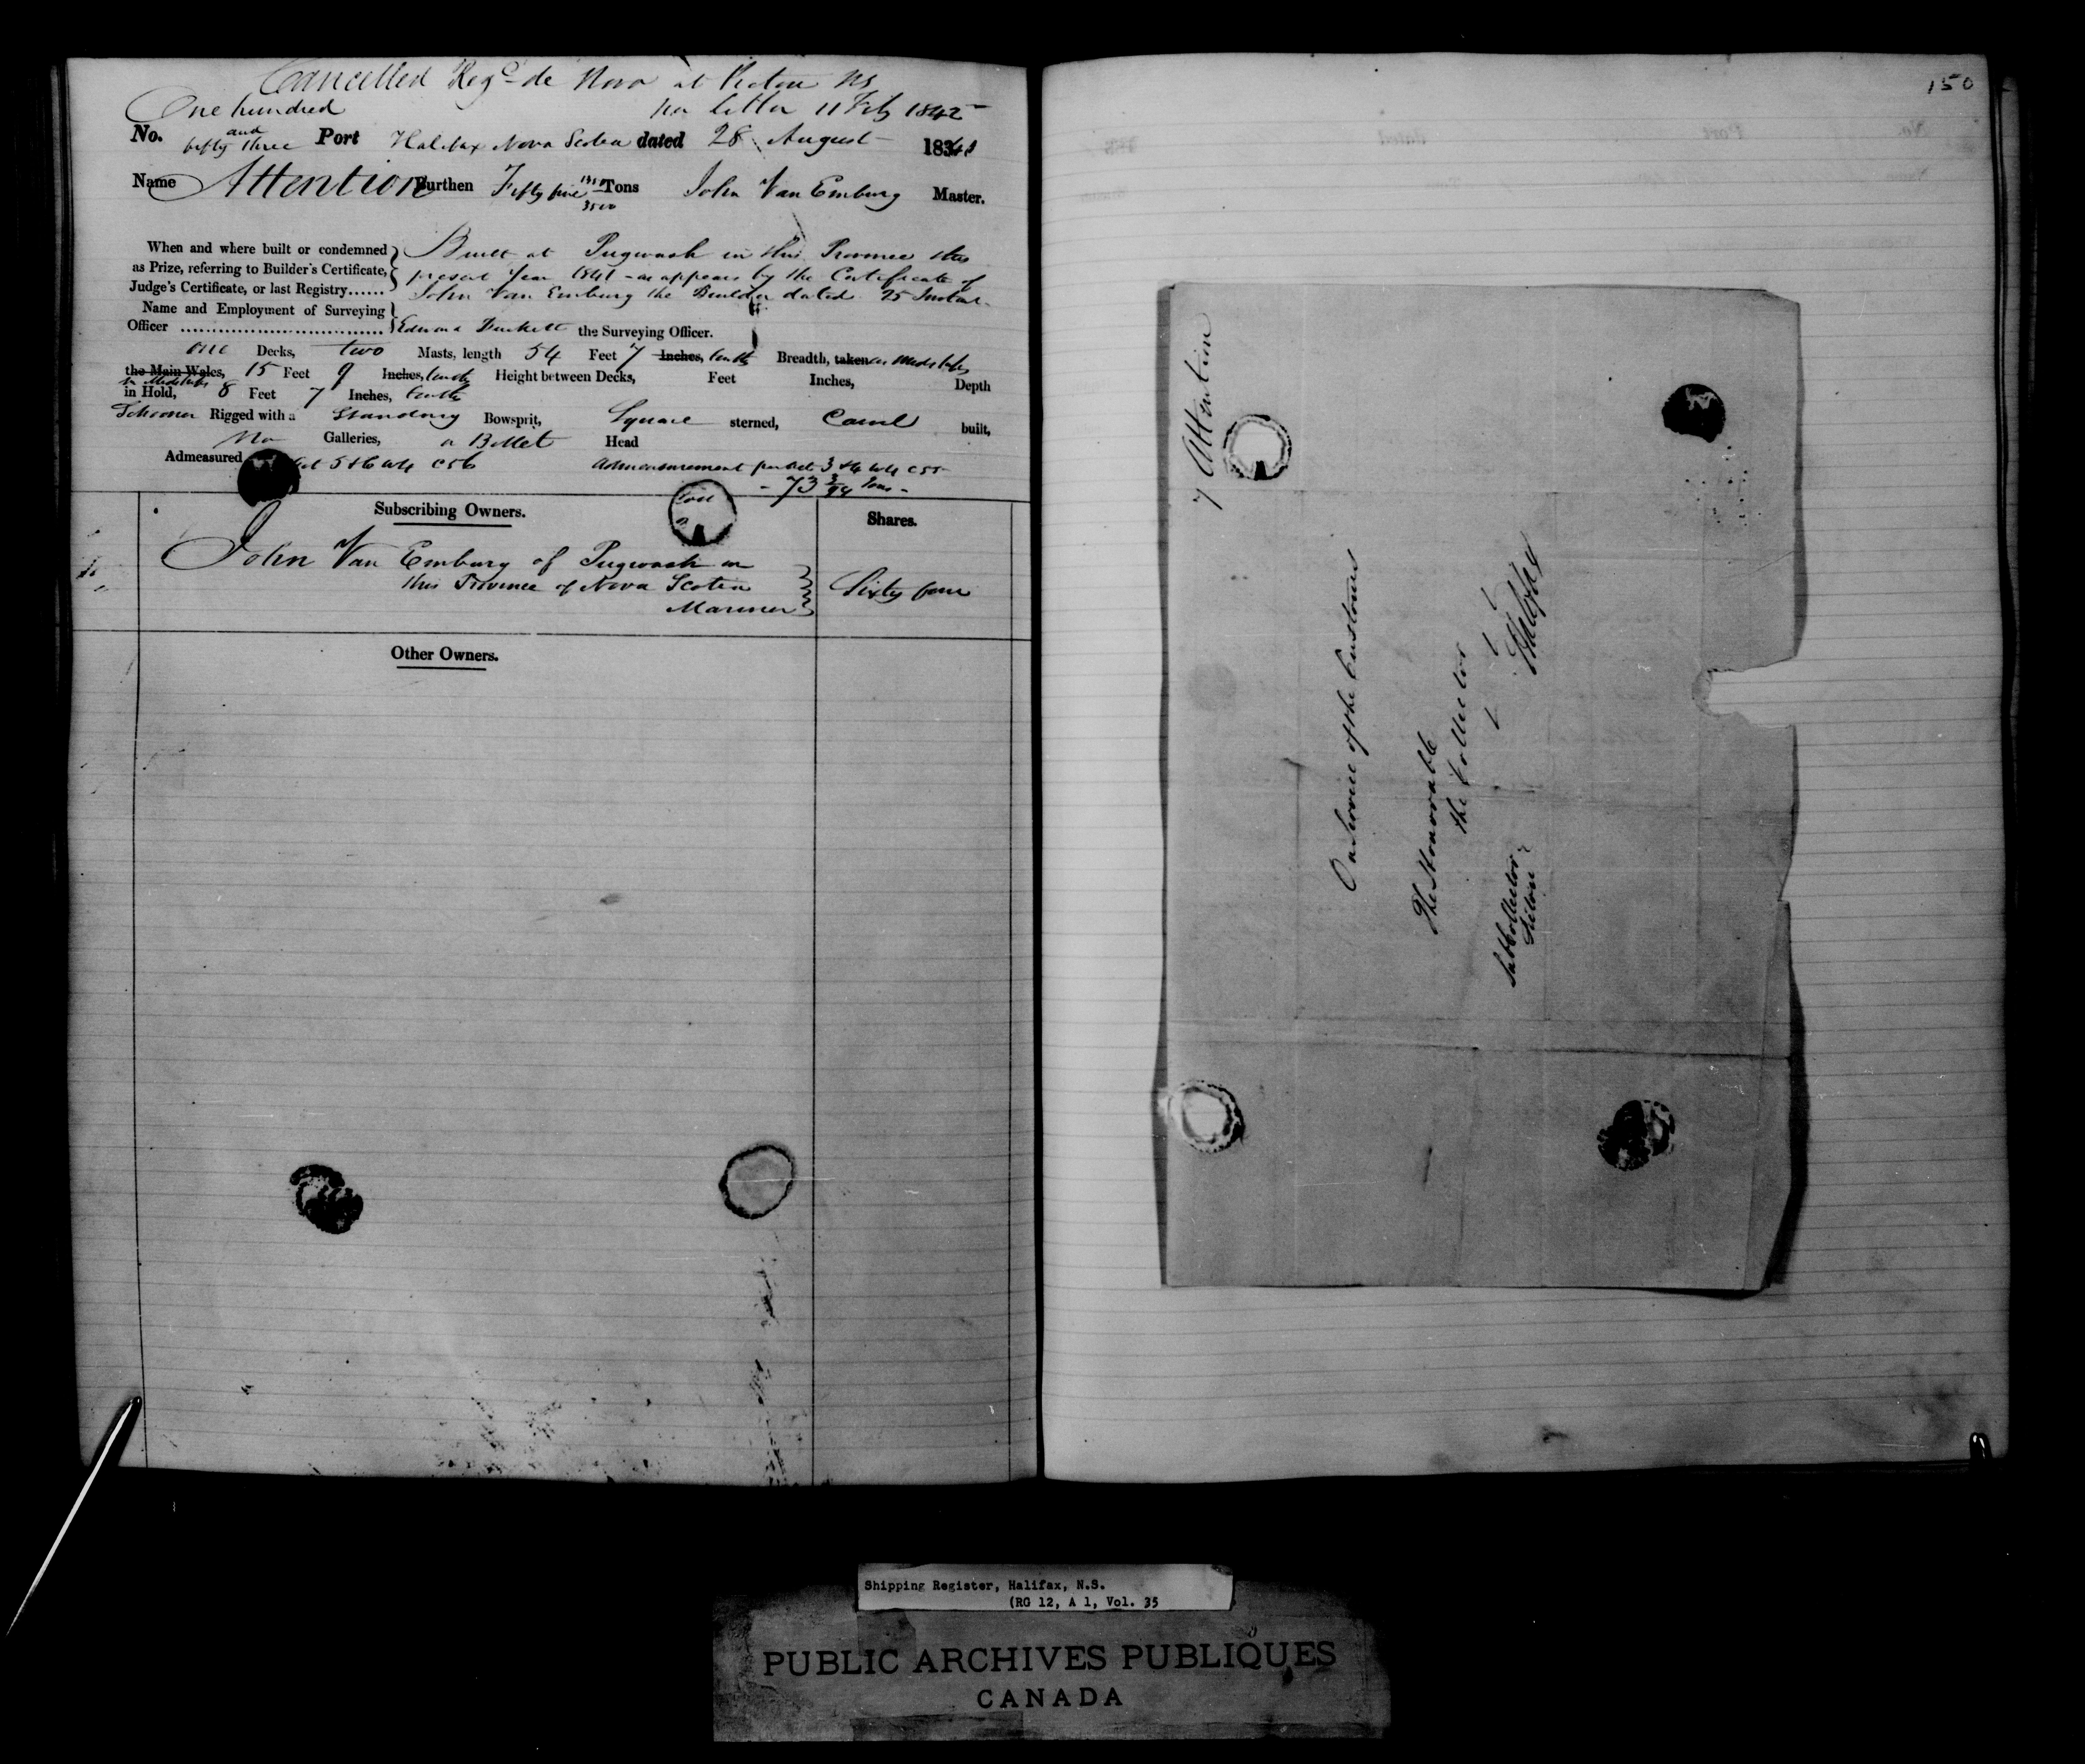 Cancelled Regd de Novo at Pictou NS
One hundred per letter 11 Feby 1842
and
No. fifty three Port Halifax Nova Scotia dated 28 August 1841
Name Attention Burthen Fifty five 3500 Tons John Van Emburg Master.
When and where built or condemned Built at Pugwash in this Province this
as Prize, referring to Builder's Certificate, present year 1841 - as appears by the Certificate of
Judge's Certificate, or last Registry...... John Van Emburg the Builder dated 25 Instant.
Name and Employment of Surveying
Officer ................................ the Surveying Officer.
one Decks, two Masts, length 54 Feet 7 Inches, tenths Breadth, taken in Midships
the Main Wales, 15 Feet 9 Inches, tenths Height between Decks, Feet Inches, Depth
in Midships
in Hold, 8 Feet 7 Inches, tenths
Schooner Rigged with a Standing Bowsprit, Square sterned, Carvel built,
No Galleries, a Billet Head
Admeasured Act 5 & 6 W4 C56 Admeasurement per Act 3 & 4 W4 C55
- 73 3/94 Tons -
Subscribing Owners. Shares.
John Van Emburg of Pugwash in
this Province of Nova Scotia Sixty four
Mariner
Other Owners.
150
7 Attention
On Service of the Customs
The Honorable
the Collector
Halifax
Subcollector
Pictou
Shipping Register, Halifax, N.S.
(RG 12, A 1, Vol. 35
PUBLIC ARCHIVES PUBLIQUES
CANADA